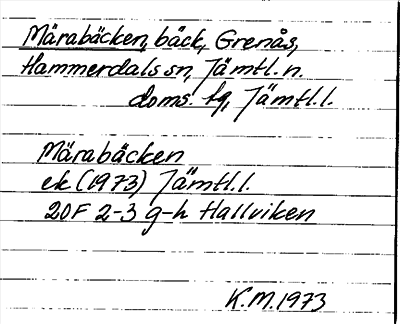 Märabäcken, bäck, Grenås,
Hammerdals sn, Jämtl. n.
doms. hg, Jämtl. l.
Märabäcken
ek (1973) Jämtl. l.
20F 2-3 g-h Hallviken
K.M. 1973